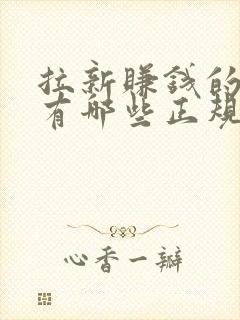 拉新赚钱的
有哪些正规
心香一瓣